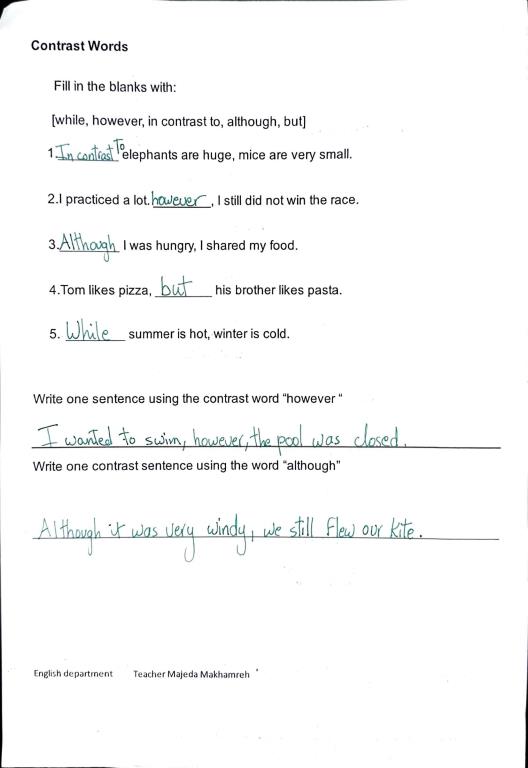 Contrast Words
Fill in the blanks with:
[while, however, in contrast to, although, but]
1.In contrast To elephants are huge, mice are very small.
2.I practiced a lot. however, I still did not win the race.
3.Although I was hungry, I shared my food.
4.Tom likes pizza, but his brother likes pasta.
5. While summer is hot, winter is cold.
Write one sentence using the contrast word “however “
I wanted to swim, however, the pool was closed.
Write one contrast sentence using the word “although”
Although it was very windy, we still flew our kite.
English department Teacher Majeda Makhamreh